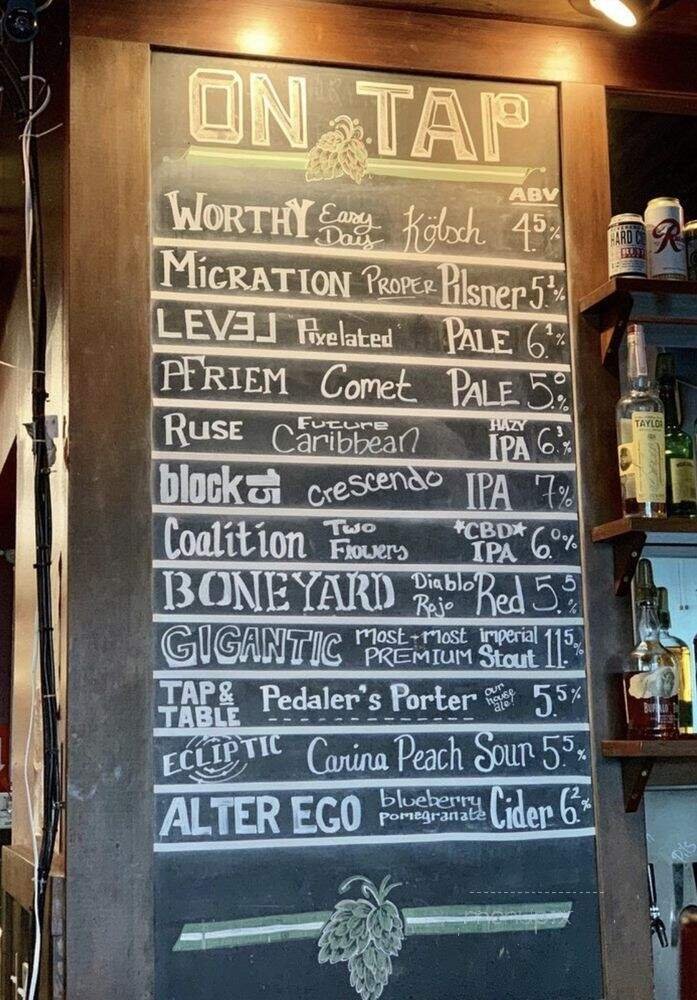 ON TAP
ABV
WORTHY Easy Days Kölsch 4.5%
MiGRATION PROPER Pilsner 5.1%
LEVEL Pixelated PALE 6.1%
PFRIEM Comet PALE 5.0%
RUSE Future Caribbean HAZY IPA 6.3%
block 15 crescendo IPA 7%
Coalition Two Flowers *CBD* IPA 6.0%
BONEYARD Diablo Rojo Red 5.5%
GIGANTIC most most PREMIUM imperial Stout 11.5%
TAP & TABLE Pedaler's Porter our house ale! 5.5%
ECLIPTIC Carina Peach Sour 5.5%
ALTER EGO blueberry pomegranate Cider 6.2%
HARD
R
TAYLOR